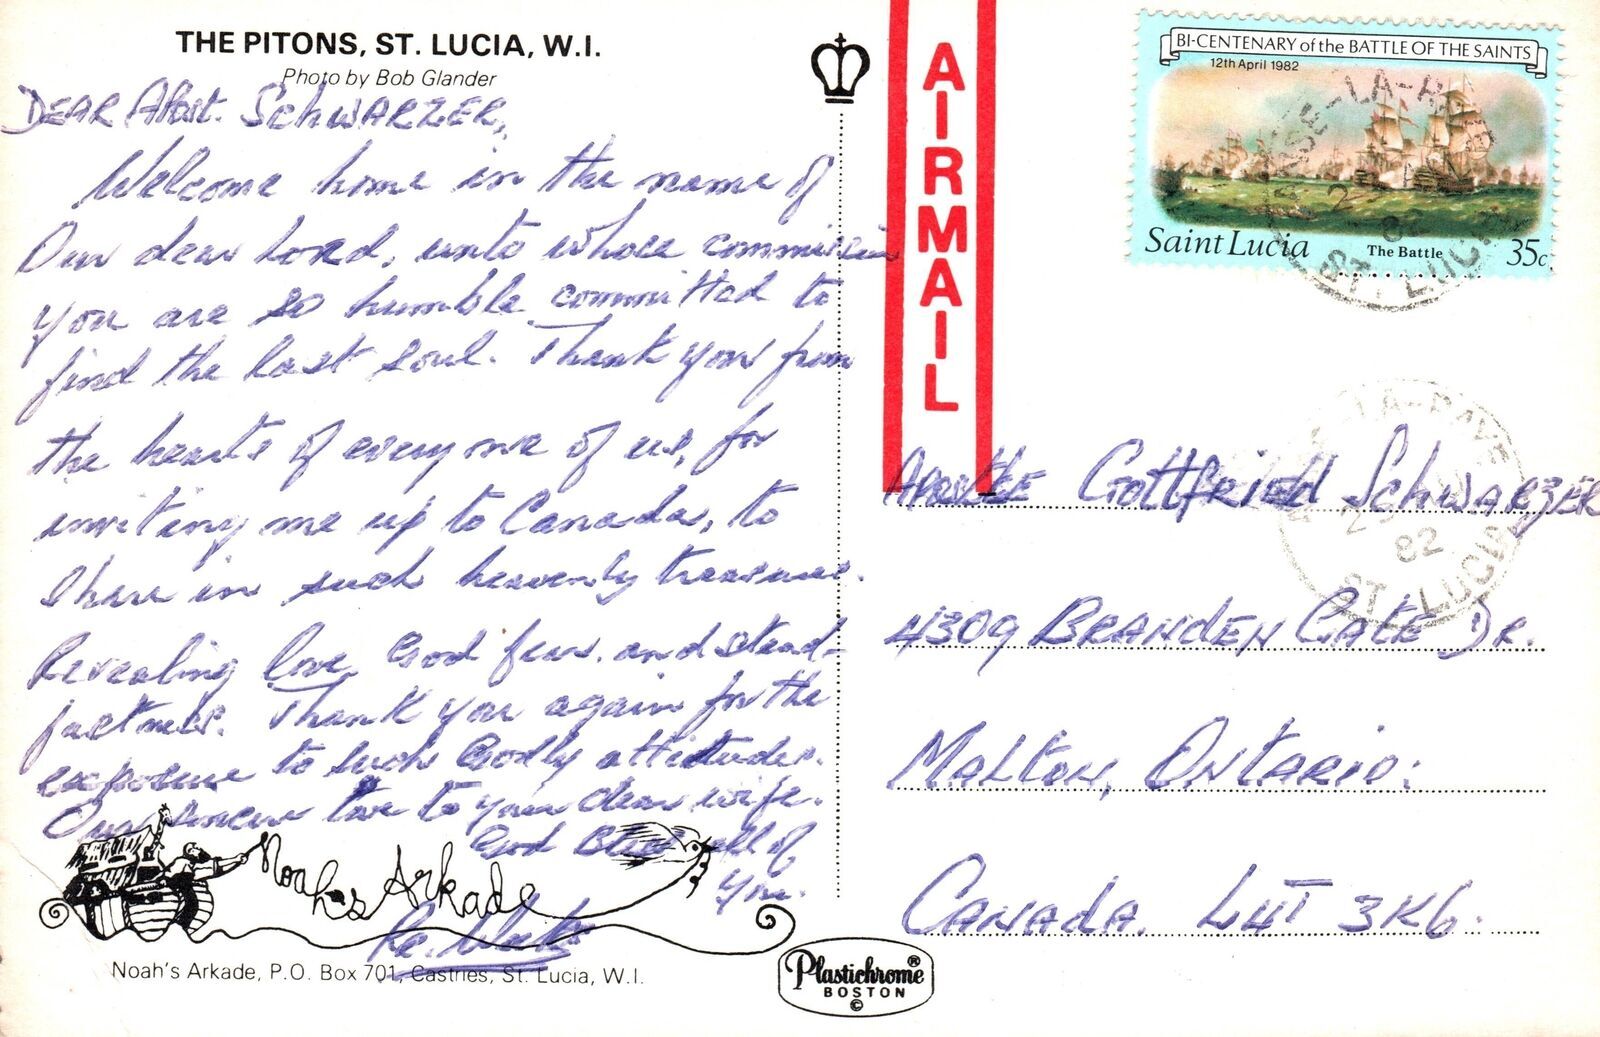 THE PITONS, ST. LUCIA, W.I.
Photo by Bob Glander
DEAR Apost. SCHWARZER,
Welcome home in the name of
Our dear Lord, unto whose commission
you are so humble committed to
find the last soul. Thank you from
the hearts of everyone of us, for
inviting me up to Canada, to
share in such heavenly treasure.
Revealing love God fear, and stead-
fastness. Thank you again for the
exposure to such Godly attitudes.
Our sincere love to your dear wife.
God Bless all of
you.
Noah's Arkade
Noah's Arkade, P.O. Box 701, Castries, St. Lucia, W.I.
Plastichrome®
BOSTON
©
AIRMAIL
BI-CENTENARY of the BATTLE OF THE SAINTS
12th April 1982
Saint Lucia The Battle 35c
ST. LUCIA
LA-RAYE
82
ST. LUCIA
Apostle Gottfried SCHWARZER
4309 BRANDEN GATE DR.
MALTON, ONTARIO.
CANADA. L4T 3K6.